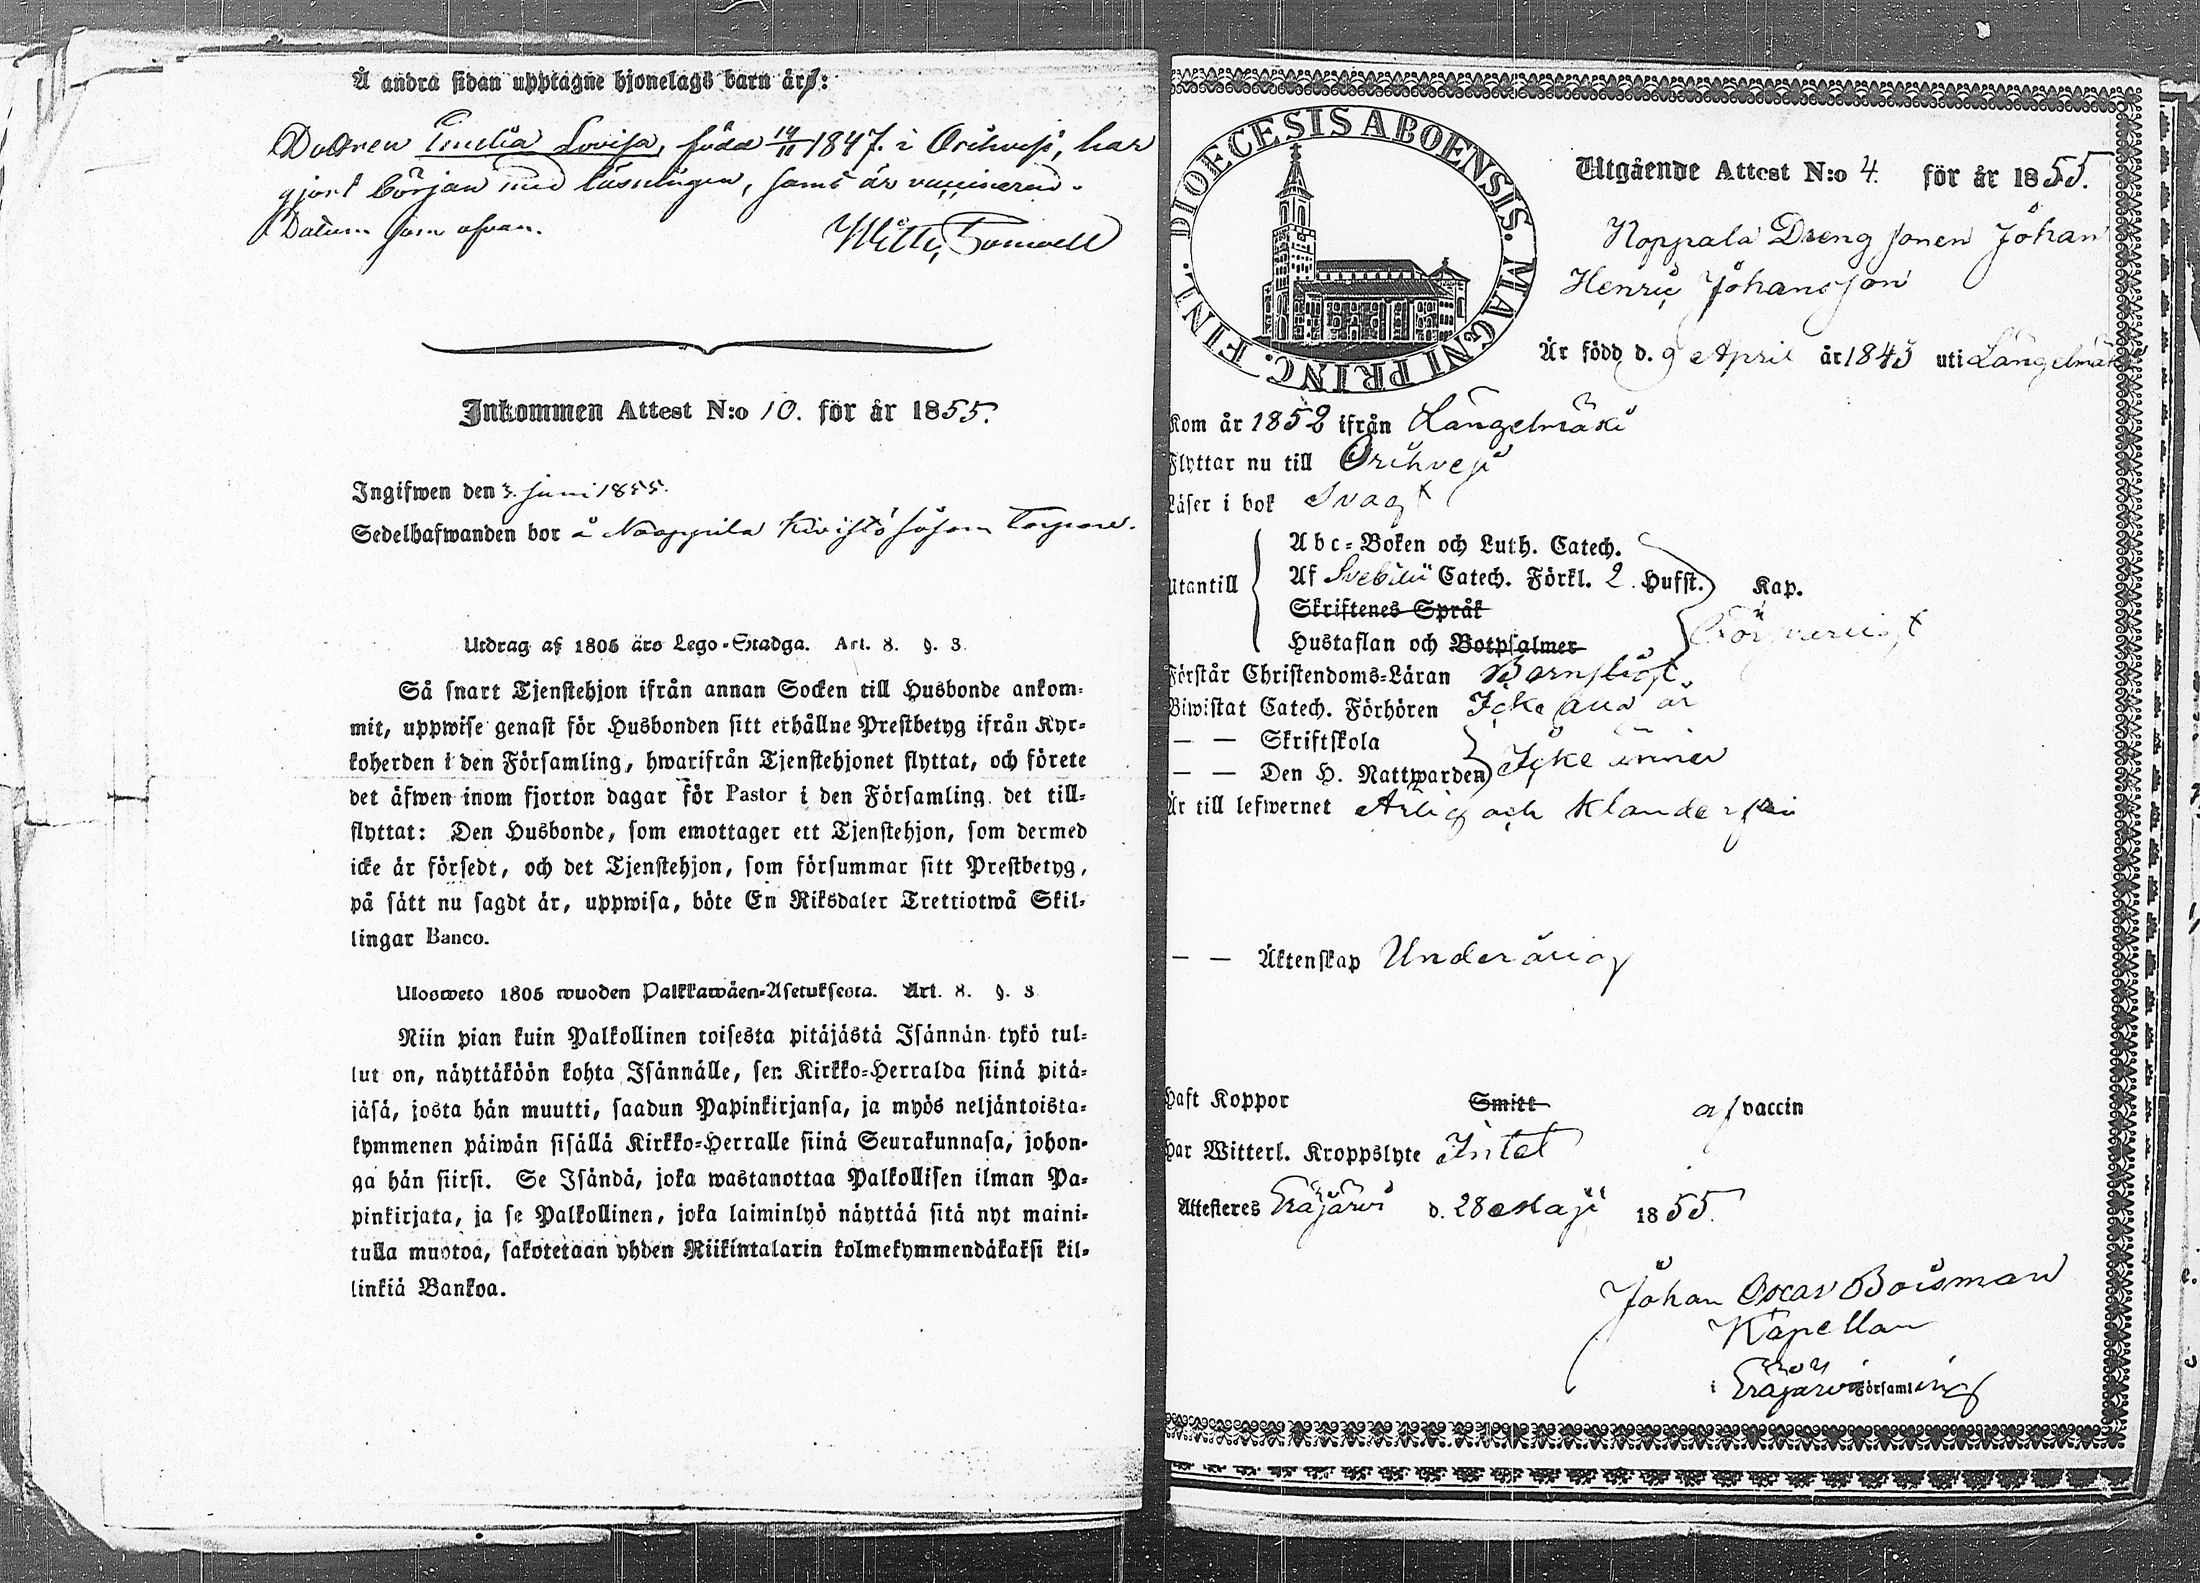 Å andra sidan upptagne hjonelags barn är:
Dottren Emelia Lovisa, född 14/11 1847 i Orihvesi, har
gjort början med läsningen, samt är vaccinerad.
Datum som ofvan.
Inkommen Attest N:o 10. för år 1855.
Ingifwen den 3 juni 1855.
Sedelhafwanden bor å Kivistö såsom
Utdrag af 1805 års Lego-Stadga. Art. 8. §. 3
Så snart Tjenstehjon ifrån annan Socken till Husbonde ankom-
mit, uppwise genast för Husbonden sitt erhållne Prestbetyg ifrån Kyr-
koherden i den Församling, hwarifrån Tjenstehjonet flyttat, och förete
det äfwen inom fjorton dagar för Pastor i den Församling det till-
flyttat: Den Husbonde, som emottager ett Tjenstehjon, som dermed
icke är försedt, och det Tjenstehjon, som försummar sitt Prestbetyg,
på sätt nu sagdt är, uppwisa, böte En Riksdaler Trettiotwå Skil-
lingar Banco.
Ulosweto 1805 wuoden Palkkawäen-Asetuksesta. Art. 8. §. 3
Niin pian kuin Palkollinen toisesta pitäjästä Isännän tykö tul-
lut on, näyttäköön kohta Isännälle, sen Kirkko-Herralda siinä pitä-
jäsä, josta hän muutti, saadun Papinkirjansa, ja myös neljäntoista-
kymmenen päiwän sisällä Kirkko-Herralle siinä Seurakunnasa, johon-
ga hän siirsi. Se Isändä, joka wastanottaa Palkollisen ilman Pa-
pinkirjata, ja se Palkollinen, joka laiminlyö näyttää sitä nyt maini-
tulla muotoa, sakotetaan yhden Riikintalarin kolmekymmendäkaksi kil-
linkiä Bankoa.
DIOECESIS ABOENSIS. MAGNI PRINC. FINL.
Utgående Attest N:o 4. för år 1855.
Koppala Dreng sonen Johan
Henric Johansson
Är född d. 9 April år 1843 uti Längelmäki
Kom år 1852 ifrån Längelmäki
Flyttar nu till Orihvesi
Läser i bok Svagt
Abc-Boken och Luth. Catech.
Utantill Af Svebilii Catech. Förkl. 2 Hufst. Kap.
Skriftenes Språk
Hustaflan och Botpsalmer
Förstår Christendoms-Läran Barnsligt
Biwistat Catech. Förhören Icke
— — Skriftskola
— — Den H. Nattwarden Icke ännu
Är till lefwernet Ärlig och klanderfri
— — Äktenskap Underårig
Haft Koppor Smitt af vaccin
Har Witterl. Kroppslyte Intet
Attesteres Eräjärvi d. 28 Maji 1855.
Johan Oscar Boisman
Kapellan
i Eräjärvi församling